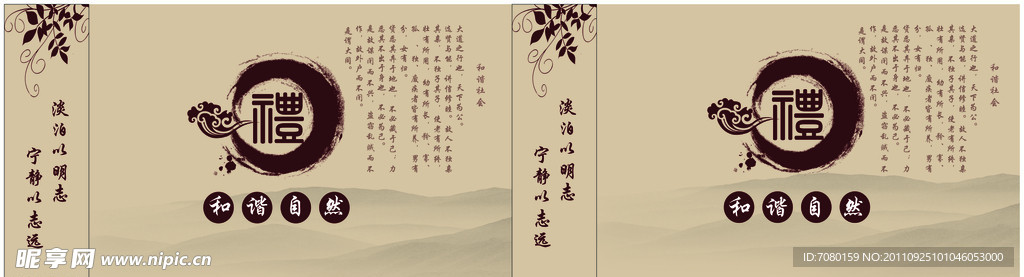 淡泊以明志
宁静以志远
禮
和谐自然
和谐社会
大道之行也，天下为公。
选贤与能，讲信修睦。故人不独亲
其亲，不独子其子，使老有所终，
壮有所用，幼有所长，矜、寡、
孤、独、废疾者皆有所养，男有
分，女有归。
货恶其弃于地也，不必藏于己；力
恶其不出于身也，不必为己。
是故谋闭而不兴，盗窃乱贼而不
作，故外户而不闭。
是谓大同。
淡泊以明志
宁静以志远
禮
和谐自然
和谐社会
大道之行也，天下为公。
选贤与能，讲信修睦。故人不独亲
其亲，不独子其子，使老有所终，
壮有所用，幼有所长，矜、寡、
孤、独、废疾者皆有所养，男有
分，女有归。
货恶其弃于地也，不必藏于己；力
恶其不出于身也，不必为己。
是故谋闭而不兴，盗窃乱贼而不
作，故外户而不闭。
是谓大同。
昵享网 www.nipic.cn
ID:7080159 NO:20110925101046053000